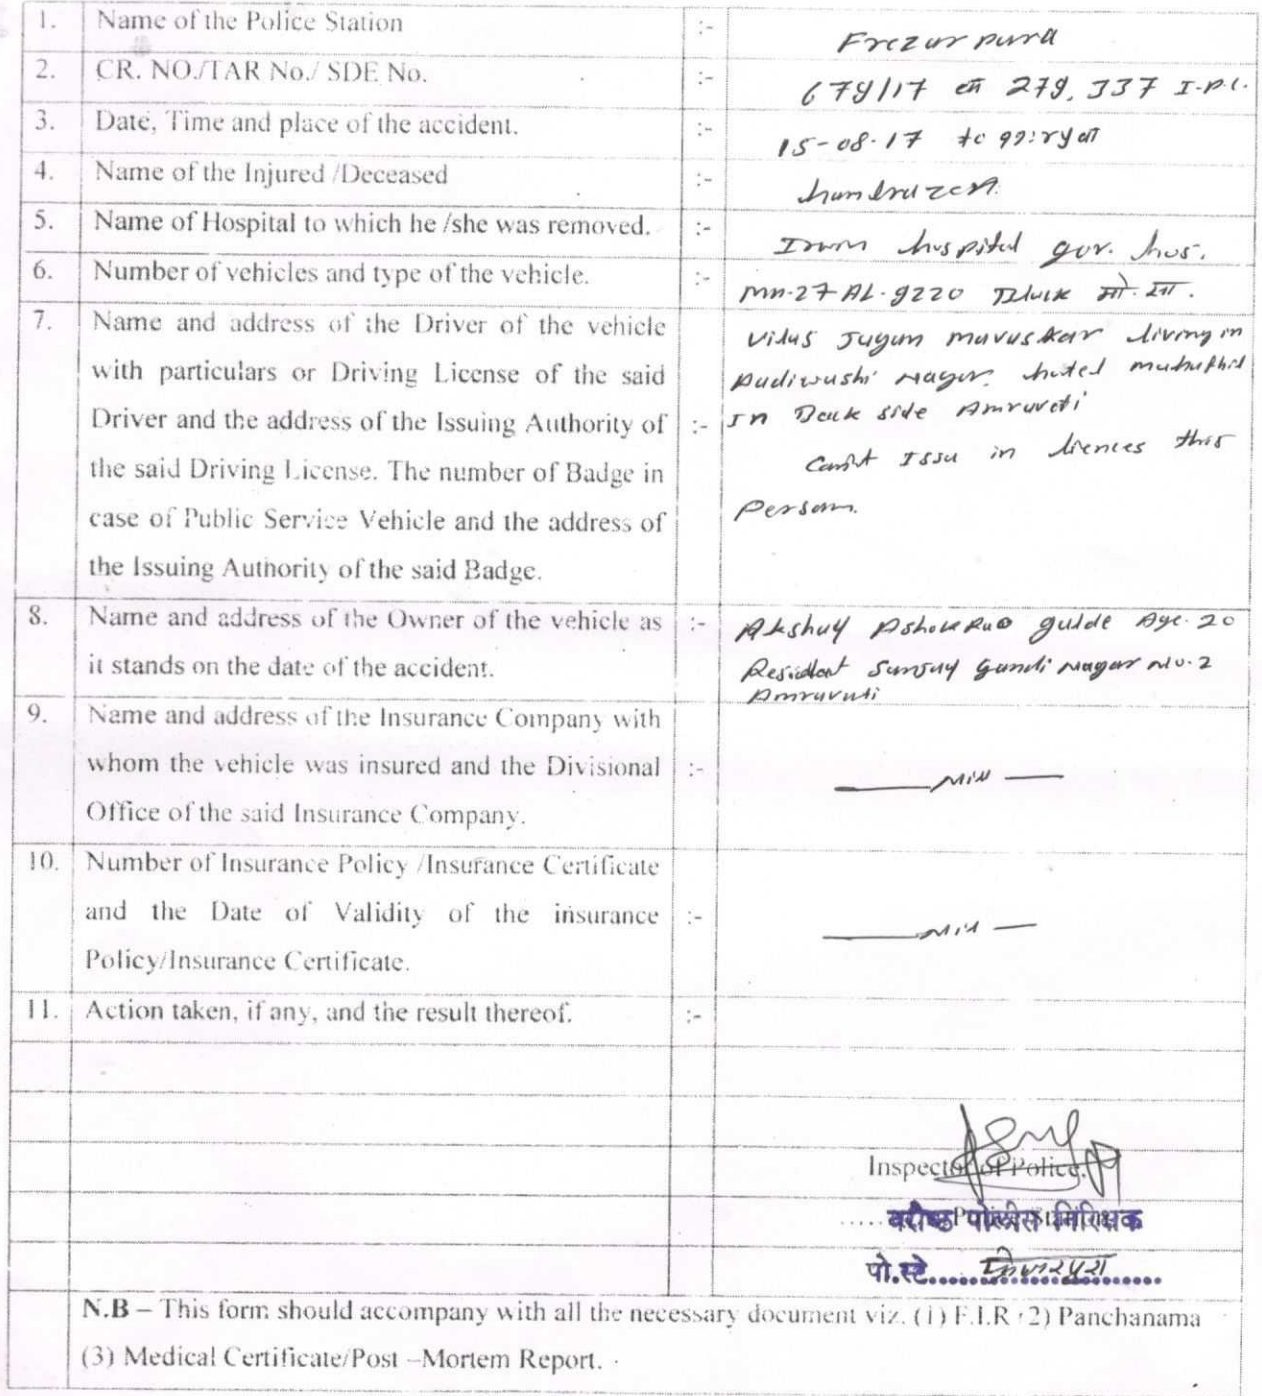 1. Name of the Police Station :- Frezarpura
2. CR. NO./TAR No./ SDE No. :- 679/17 279, 337 I.P.C.
3. Date, Time and place of the accident. :- 15-08-17
4. Name of the Injured /Deceased :-
5. Name of Hospital to which he /she was removed. :- Irwin hospital gov. hos.
6. Number of vehicles and type of the vehicle. :- MH-27-AL-9220 मो. सा.
7. Name and address of the Driver of the vehicle
with particulars or Driving License of the said
Driver and the address of the Issuing Authority of :-
the said Driving License. The number of Badge in
case of Public Service Vehicle and the address of
the Issuing Authority of the said Badge.
Vilas Jugun Mavaskar living in
Nagar. hotel
In Back side Amravati
Issu in liences this
Person.
8. Name and address of the Owner of the vehicle as :- Akshay Ashokrao gulde Age. 20
it stands on the date of the accident. Sanjay Gandi Nagar No. 2
Amravati
9. Name and address of the Insurance Company with
whom the vehicle was insured and the Divisional :- Nill
Office of the said Insurance Company.
10. Number of Insurance Policy /Insurance Certificate
and the Date of Validity of the insurance :- Nill
Policy/Insurance Certificate.
11. Action taken, if any, and the result thereof. :-
Inspector of Police.
वरीष्ठ पोलीस निरिक्षक
पो.स्टे.
N.B – This form should accompany with all the necessary document viz. (1) F.I.R (2) Panchanama
(3) Medical Certificate/Post –Mortem Report.